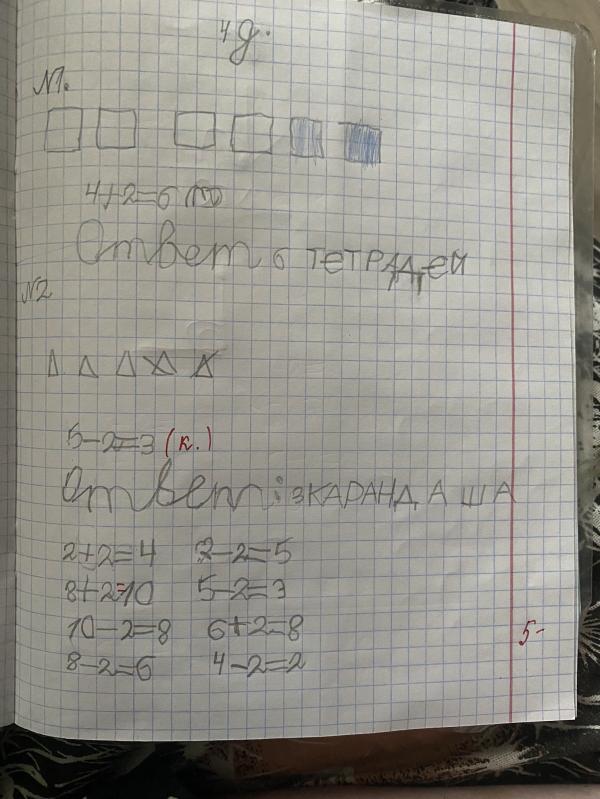 4 д.
№1.
4+2=6 (т)
Ответ 6 ТЕТРАДЕЙ
№2
5-2=3 (к.)
Ответ: 3 КАРАНДАША
2+2=4 7-2=5
8+2=10 5-2=3
10-2=8 6+2=8
8-2=6 4-2=2
5-